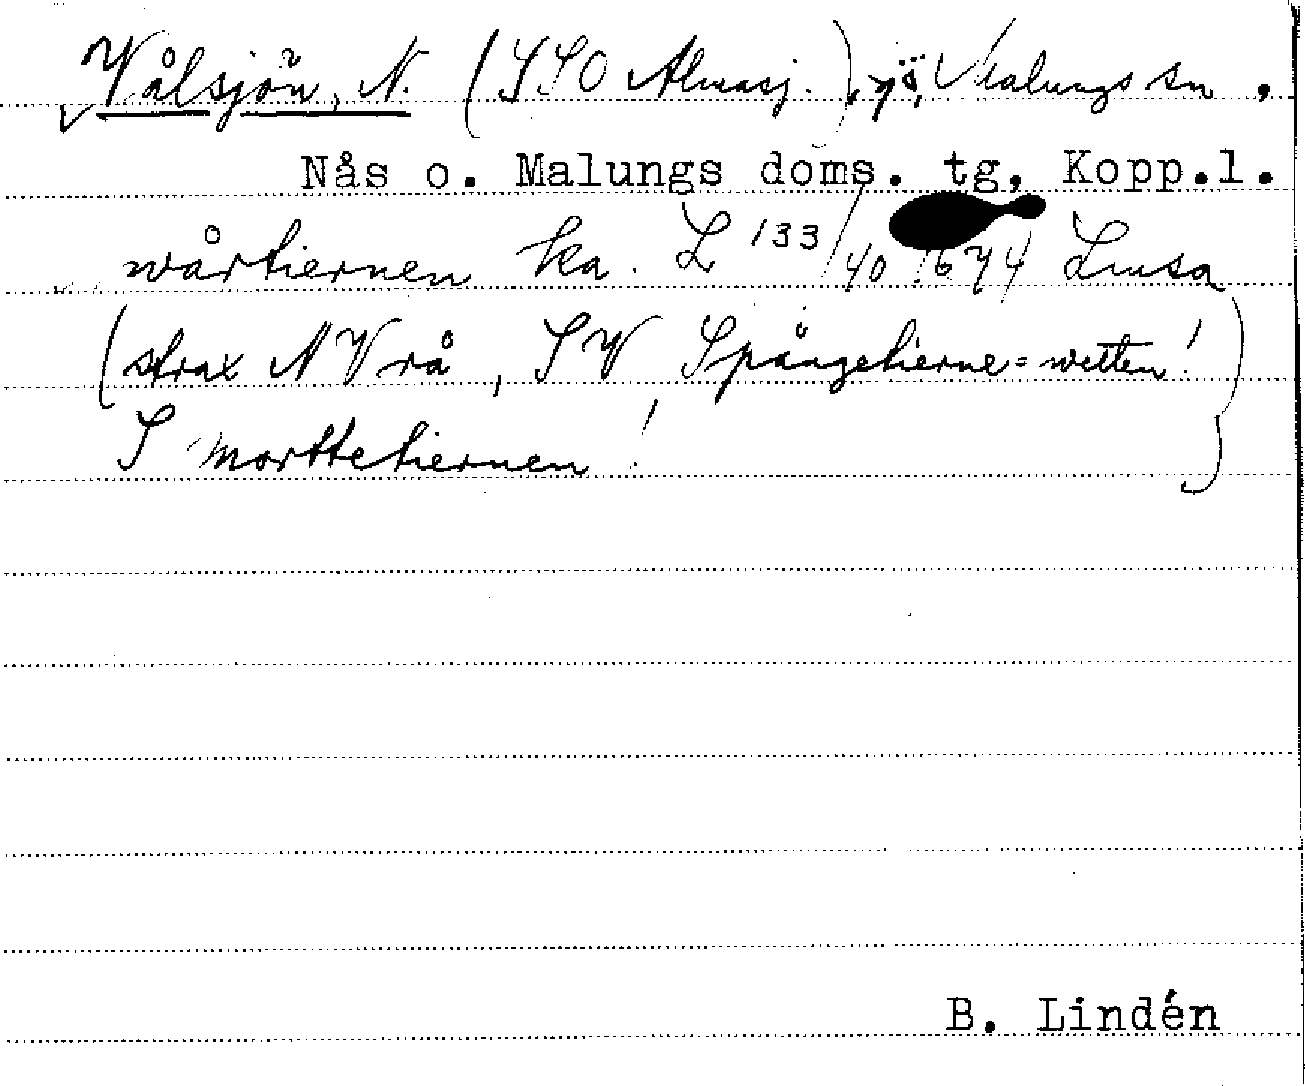 Vålsjön, N. (SSO Almasj.), sjö, Malungs sn.
Nås o. Malungs doms. tg, Kopp.l.
wårtiernen ka. L 133/40 1674 Limsa
(strax N Vrå, SV Spångetierne=wetten!
S morttetiernen!)
B. Lindén